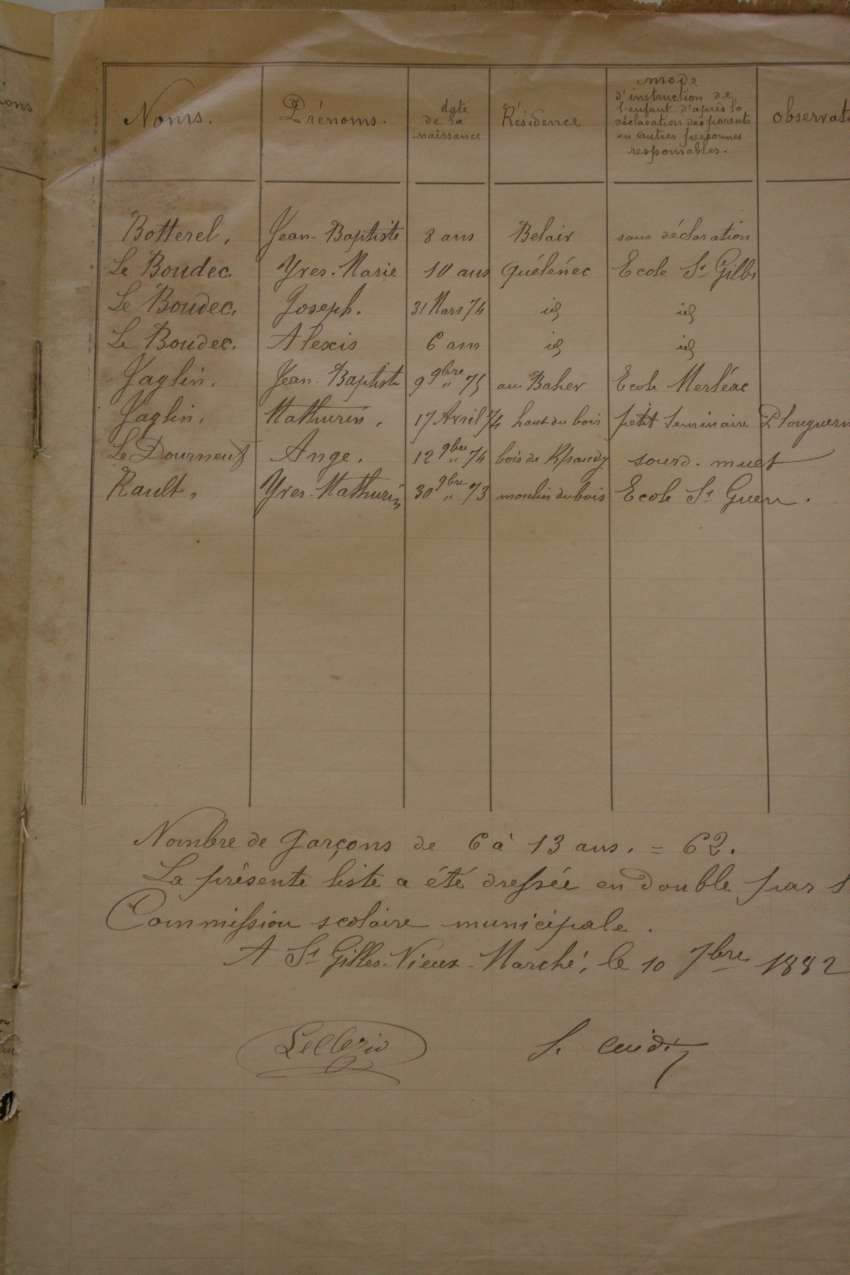 Noms. Prénoms. date de la naissance Résidence mode d'instruction de l'enfant d'après la déclaration des parents ou autres personnes responsables. observat
Botterel, Jean-Baptiste 8 ans Belair sans déclaration
Le Boudec, Yves-Marie 10 ans Quélénec Ecole St Gilles
Le Boudec, Joseph. 31 Mars 74 id id
Le Boudec. Alexis 6 ans id id
Jaglin. Jean-Baptiste 9 9bre 75 au Baher Ecole Merléac
Jaglin. Mathurin, 17 Avril 74 haut du bois petit Séminaire Plouguern
Le Dourneuf Ange. 12 9bre 74 bois de sourd-muet
Rault, Yves-Mathurin 30 9bre 73 moulin du bois Ecole St Guen.
Nombre de garçons de 6 à 13 ans. = 62.
La présente liste a été dressée en double par l
Commission scolaire municipale.
A St Gilles-Vieux-Marché, le 10 7bre 1882
Leclezio